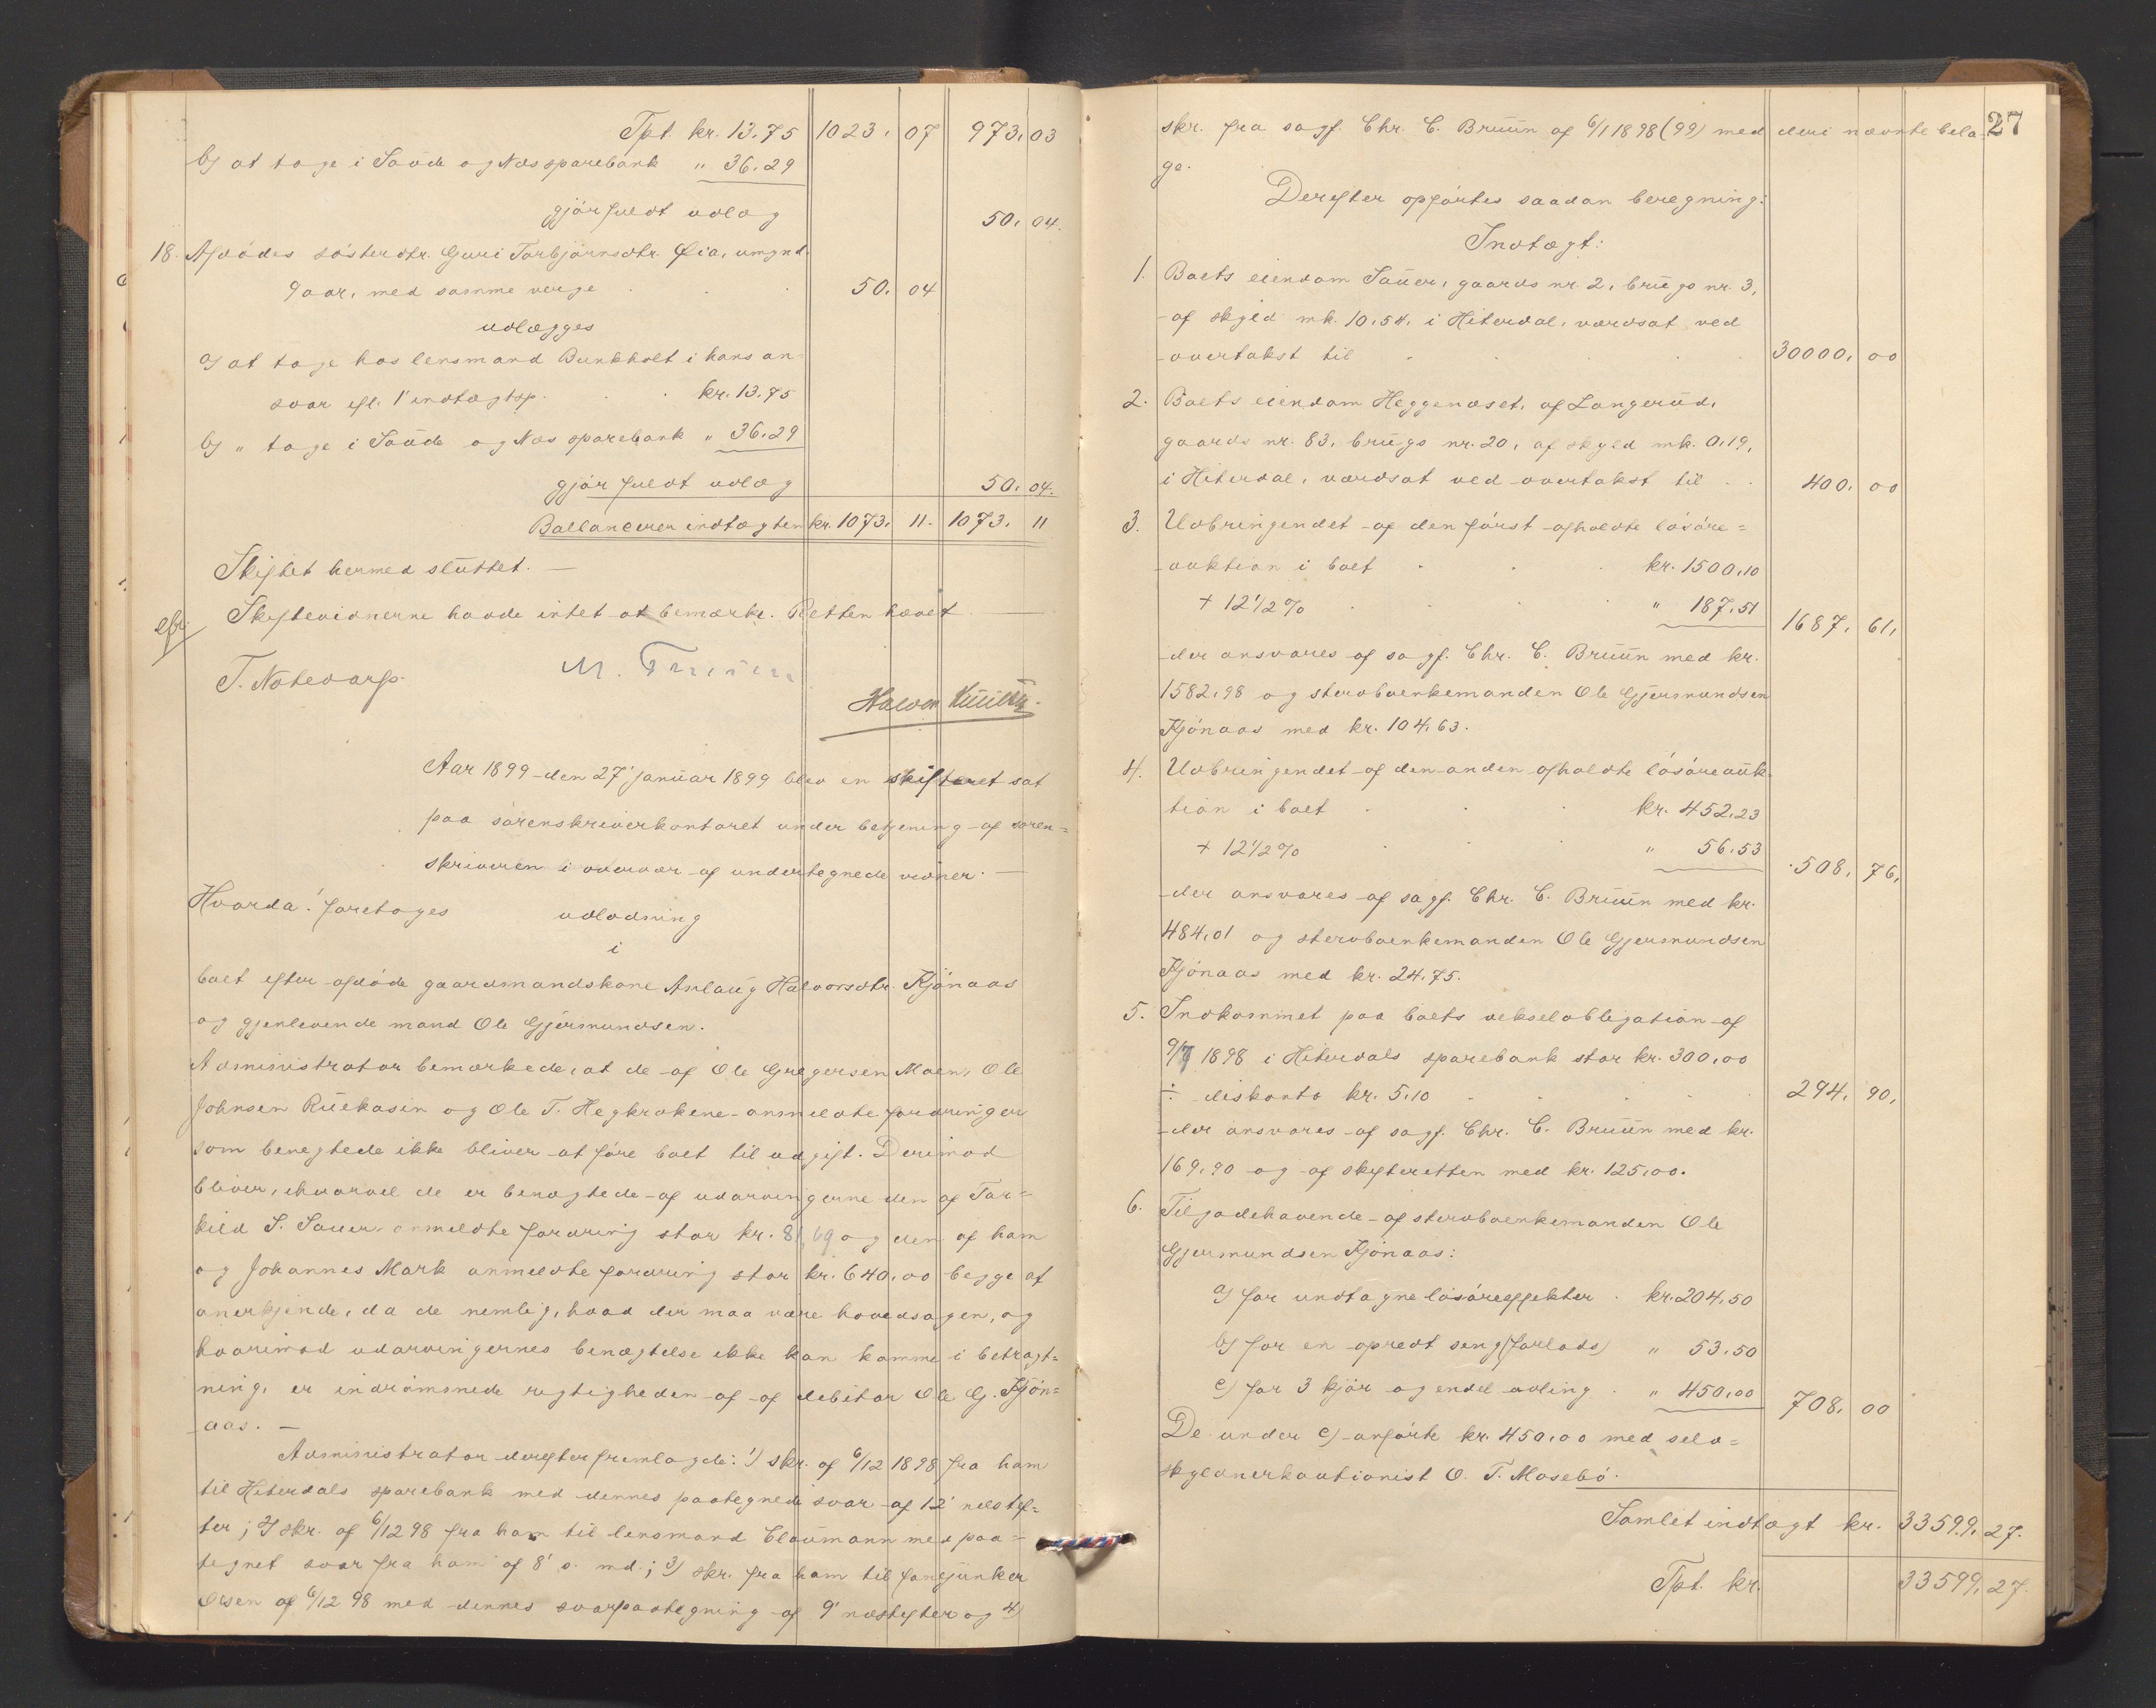 Tpt. kr. 13.75 1023. 07 973. 03
b) at tage i Saude og Næs sparebank " 36.29
gjör fuldt udlæg 50. 04.
18. Afdödes sösterdtr. Guri Torbjörnsdtr. Øia, umynd.
9 aar, med samme verge . . 50. 04
udlægges
a) at tage hos lensmand Bunkholt i hans an-
svar efl. 1' indtægtsp. . . kr. 13.75
b) " tage i Saude og Næs sparebank " 36.29
gjör fuldt udlæg 50. 04.
Ballancerer indtægten kr. 1073. 11. 1073. 11
Skiftet hermed sluttet. —
Skiftevidnerne havde intet at bemærke. Retten hævet. —
T. Notevarp.
Halvor
Aar 1899 den 27' januar 1899 blev en skifteret sat
paa sörenskriverkontoret under betjening af soren=
skriveren i overvær af undertegnede vidner. —
Hvorda! foretoges udlodning
i
boet efter afdöde gaardmandskone Anlaug Halvorsdtr. Kjönaas
og gjenlevende mand Ole Gjermundsen.
Administrator bemærkede, at de af Ole Gregersen Moen, Ole
Johnsen Ruekasin og Ole T. Hegkrokene anmeldte fordringer
som benegtede ikke bliver at före boet til udgift. Derimod
bliver, ihvorvel de er benægtede af udarvingerne den af Tar=
kild S. Sauer anmeldte fordring stor kr. 81,69 og den af ham
og Johannes Mark anmeldte fordring stor kr. 640,00 begge at
anerkjende, da de nemlig, hvad der maa være hovedsagen, og
hvorimod udarvingernes benægtelse ikke kan komme i betragt=
ning, er indrömmede rigtigheden af af debitor Ole G. Kjön=
aas. —
Administrator derefter fremlagde: 1) skr. af 6/12 1898 fra ham
til Hiterdals sparebank med dennes paategnede svar af 12' næstef=
ter; 2) skr. af 6/12 98 fra ham til lensmand Claumann med paa=
tegnet svar fra ham af 8' s. md.; 3) skr. fra ham til fanejunker
Olsen af 6/12 98 med dennes svarpaategning af 9' næstefter og 4)
27
skr. fra sagf. Chr. C. Bruun af 6/1 1898 (99) med deri nævnte bila-
ge.
Derefter opförtes saadan beregning:
Indtægt:
1. Boets eiendom Sauer, gaards nr. 2, brugs nr. 3,
af skyld mk. 10.54. i Hiterdal, værdsat ved
overtakst til . . . . . 30000. 00
2. Boets eiendom Heggenæset, af Langerud,
gaards nr. 83, brugs nr. 20, af skyld mk. 0.19,
i Hiterdal, værdsat ved overtakst til . . 400. 00
3. Udbringendet af den först afholdte lösöre=
auktion i boet . . . kr. 1500,10
+ 12 1/2 % . . . " 187.51 1687. 61.
der ansvares af sagf. Chr. C. Bruun med kr.
1582.98 og stervboenkemanden Ole Gjermundsen
Kjönaas med kr. 104,63.
4. Udbringendet af den anden afholdte lösöreauk=
tion i boet . . . kr. 452,23
+ 12 1/2 % . . . " 56.53 508. 76.
der ansvares af sagf. Chr. C. Bruun med kr.
484,01 og stervboenkemanden Ole Gjermundsen
Kjönaas med kr. 24,75.
5. Indkommet paa boets vekselobligation af
9/7 1898 i Hiterdals sparebank stor kr. 300,00
÷ diskonto kr. 5.10 . . . 294. 90.
der ansvares af sagf. Chr. C. Bruun med kr.
169,90 og af skifteretten med kr. 125,00.
6. Tilgodehavende af stervboenkemanden Ole
Gjermundsen Kjönaas:
a) for undtagne lösöreeffekter . kr. 204,50
b) for en opredt seng (forlods) " 53.50
c) for 3 kjör og endel avling . " 450,00 708. 00
De under c) anförte kr. 450,00 med selv=
skyldnerkautionist O. T. Mosebö.
Samlet indtægt kr. 33599. 27.
Tpt. kr. 33599. 27.